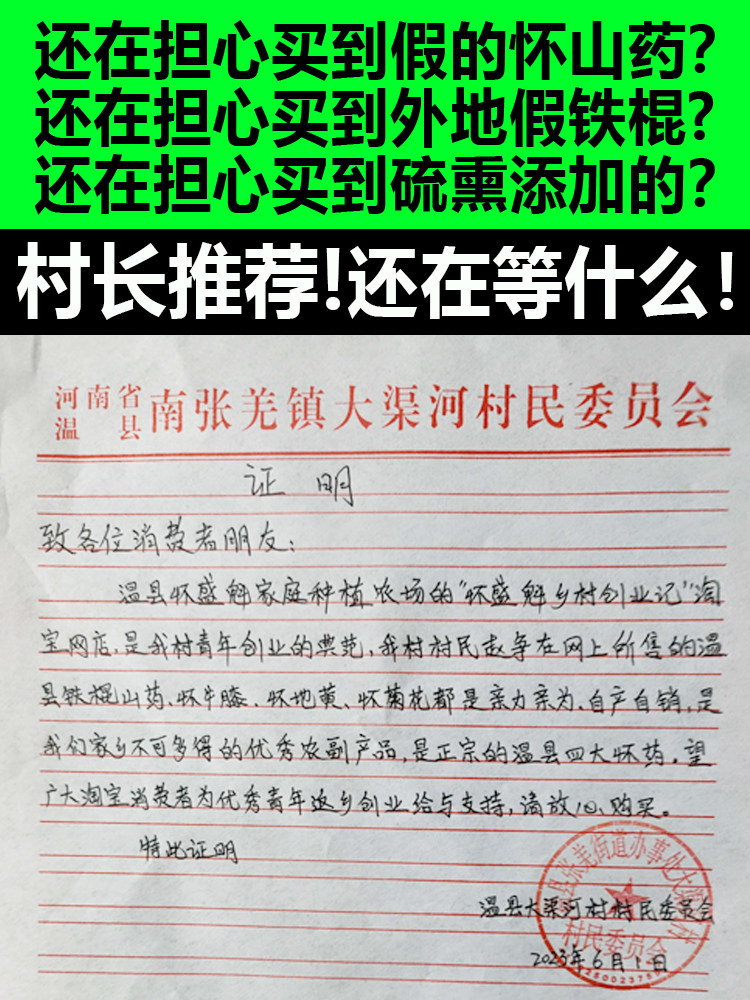 还在担心买到假的怀山药?
还在担心买到外地假铁棍?
还在担心买到硫熏添加的?
村长推荐!还在等什么!
河南省
温县
南张羌镇大渠河村民委员会
证明
致各位消费者朋友:
温县怀盛斛家庭种植农场的"怀盛斛乡村创业记"淘
宝网店,是我村青年创业的典范,我村村民赵争在网上所售的温
县铁棍山药、怀牛膝、怀地黄、怀菊花都是亲力亲为、自产自销,是
我们家乡不可多得的优秀农副产品,是正宗的温县四大怀药。望
广大淘宝消费者为优秀青年返乡创业给与支持,请放心购买。
特此证明
温县大渠河村村民委员会
2023年6月1日
张羌街道办事处大渠
村民委员会